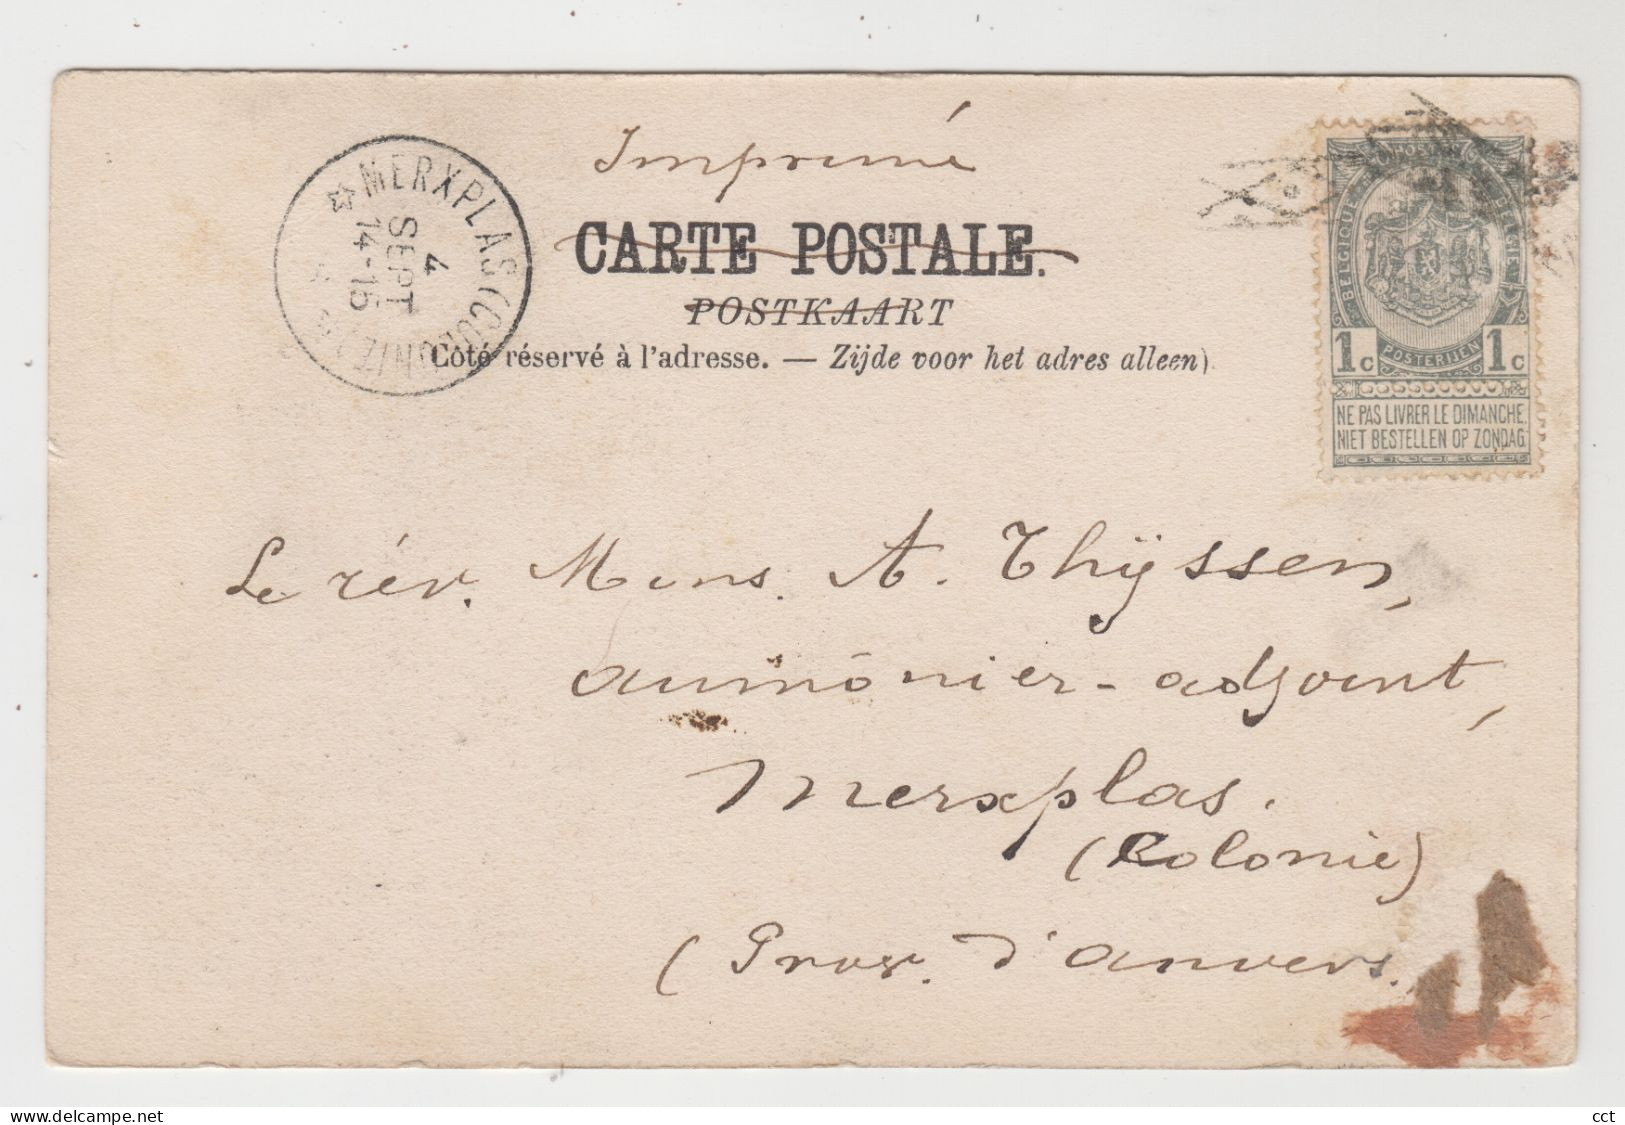 Imprimé
CARTE POSTALE.
POSTKAART
(Côté réservé à l'adresse. — Zijde voor het adres alleen)
MERXPLAS
4
SEPT
14-15
BELGIQUE POSTES BELGIE
1c POSTERIJEN 1c
NE PAS LIVRER LE DIMANCHE.
NIET BESTELLEN OP ZONDAG.
Le rév. Mons. A. Thÿssen,
aumônier-adjoint,
Merxplas.
(Colonie)
(Prov. d'Anvers.
delcampe.net
cct